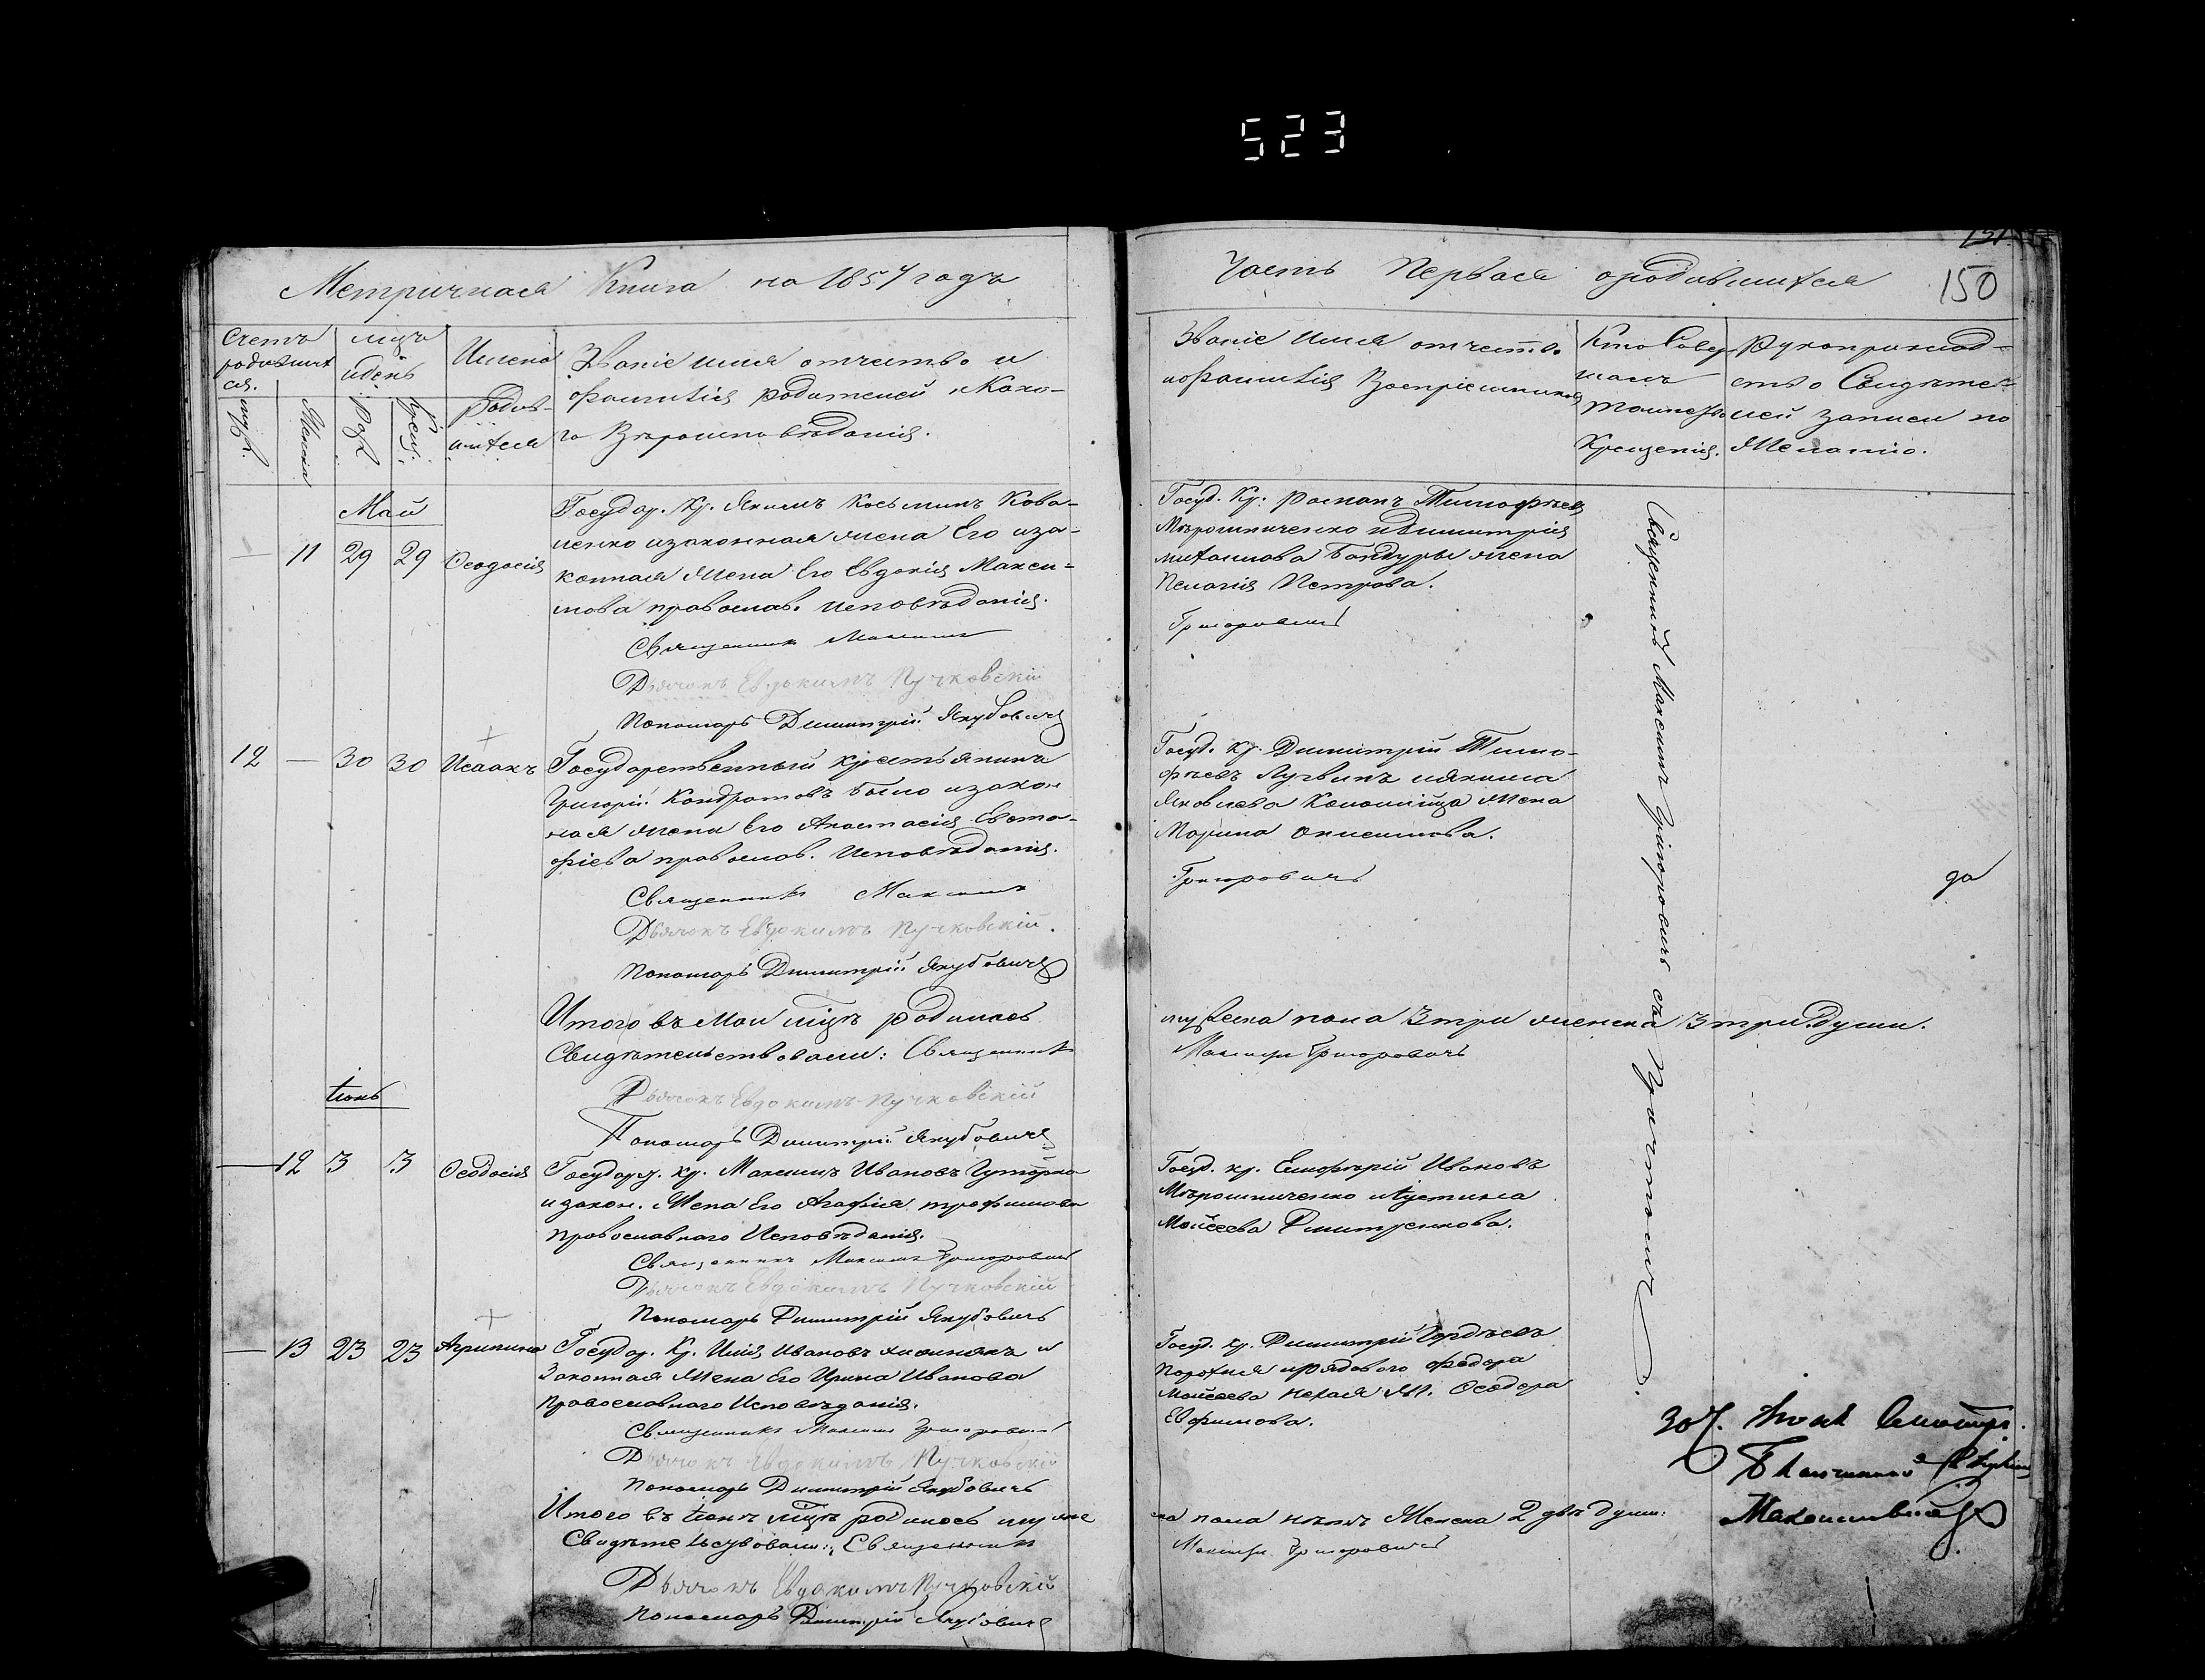 523
Метричная Книга на 1857 годъ
Счетъ родившихся.
муж.
Женска
мѣсяцъ и день
Рож.
Крещ.
Имена Родившихся
Званіе имя отчество и
фамилія родителей и Како-
го Вѣроисповѣданія.
Май
11 29 29 Ѳеодосія
Государ. Кр. Якимъ Косьминъ Кова-
ленко и законная жена Его и за-
конная жена Его Евдокія Макси-
мова православ. исповѣданія.
Священникъ Максимъ
Дьячокъ Евдокимъ Пучковскій
Пономарь Димитрій Якубовичъ
12 — 30 30 Исаакъ
Государственный крестьянинъ
Григорій Кондратовъ и закон
ная жена Его Анастасія Евста-
фіева православ. Исповѣданія.
Священникъ Максимъ
Дьячокъ Евдокимъ Пучковскій.
Пономарь Димитрій Якубовичъ
Итого въ Маи мцѣ родилось
Свидѣтельствовали: Священникъ
Дьячокъ Евдокимъ Пучковскій
Пономарь Димитрій Якубовичъ
Іюнь
— 12 3 3 Ѳеодосія
Государ. кр. Максимъ Ивановъ
и закон. Жена Его Агафія трофимова
православнаго Исповѣданія.
Священникъ Максимъ Григоровичъ
Дьячокъ Евдокимъ Пучковскій
Пономарь Димитрій Якубовичъ
— 13 23 23 Агрипина
Государ. Кр. Илія Ивановъ и
Законная Жена Его Ирина Иванова
Православнаго Исповѣданія.
Священникъ Максимъ Григоровичъ
Дьячокъ Евдокимъ Пучковскій
Пономарь Димитрій Якубовичъ
Итого въ Іюнѣ мцѣ родилось муже
Свидѣтельствовали: Священникъ
Дьячокъ Евдокимъ Пучковскій
Пономарь Димитрій Якубовичъ
Часть Первая о родившихся
151
150
Званіе имя отчество
и фамилія Воспріемниковъ
Кто Совер
шалъ
таинство
Крещенія.
Рукоприклад-
ство Свидѣте-
лей записи по
Желанію.
Госуд. Кр. Романъ Тимофѣевъ
Мѣрошниченко и Димитрія
Бандуры жена
Пелагія Петрова.
Григоровичъ
Госуд. кр. Димитрій Тимо-
фѣевъ и Якима
Яковлева Коломійца жена
Марина Анисимова.
Григоровичъ
да
мужеска пола 3 три женска 3 три души.
Максимъ Григоровичъ
Священникъ Максимъ Григоровичъ съ Причтомъ
Госуд. кр. Елифѣрій Ивановъ
Мѣрошниченко и Іустина
Моисеева Дмитренкова.
Госуд. кр. Димитрій Гордѣевъ
и рядового Федора
Моисеева Ѳеодора
Евфимова.
на пола нѣтъ Женска 2 двѣ души:
Максимъ Григоровичъ